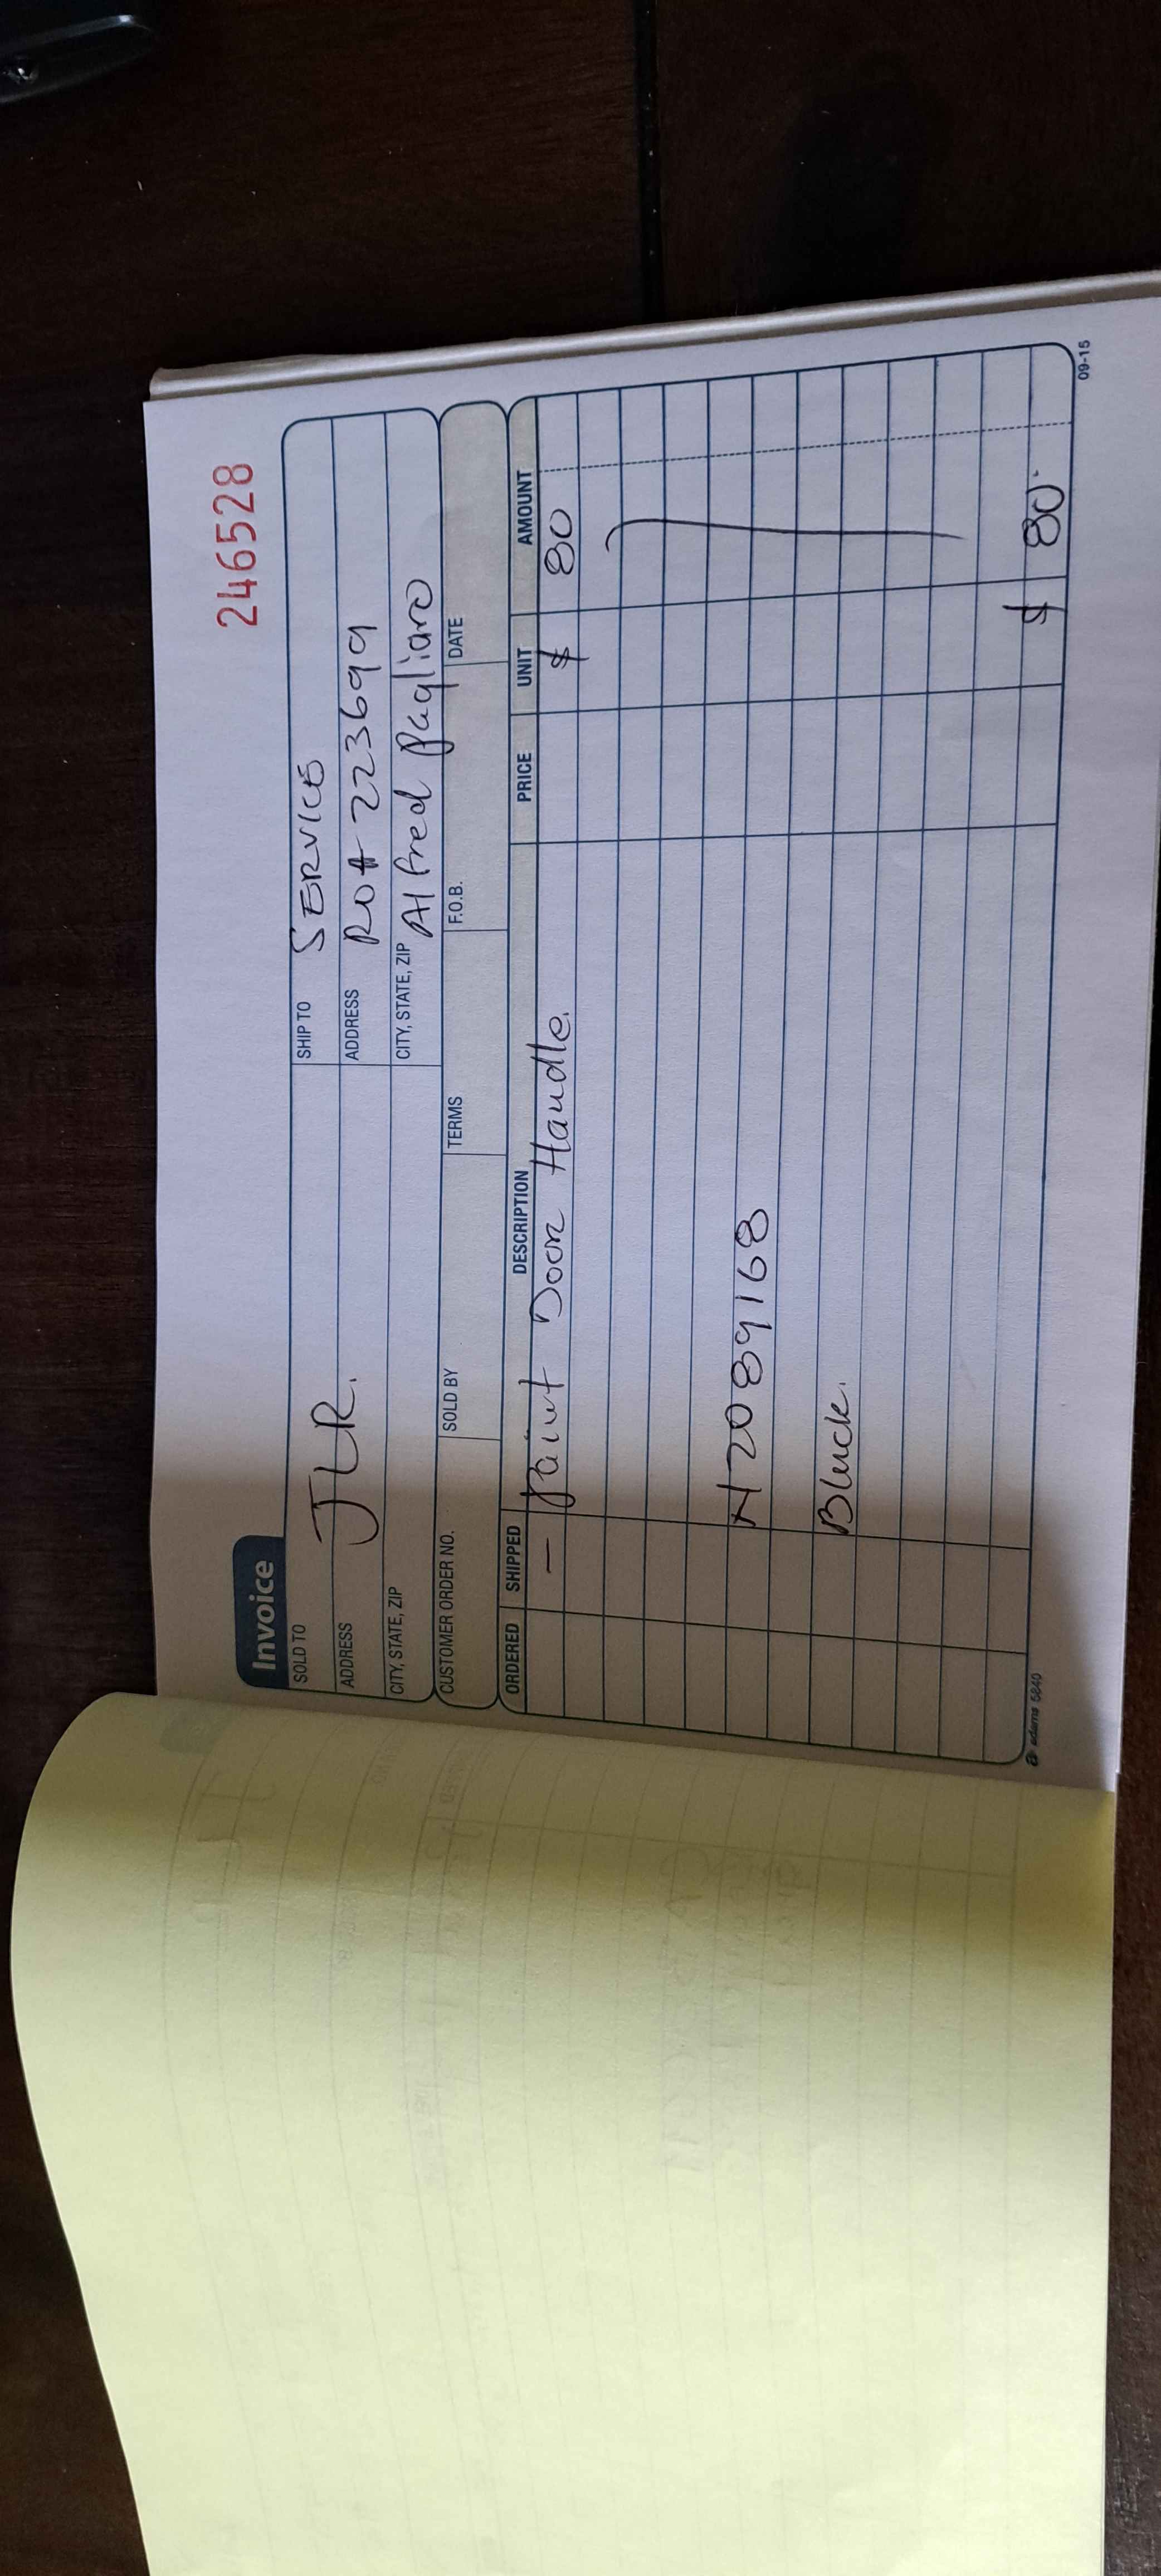 246528
Invoice
SOLD TO JLR.
SHIP TO SERVICE
ADDRESS
ADDRESS RO# 223699
CITY, STATE, ZIP
CITY, STATE, ZIP Alfred Pagliaro
CUSTOMER ORDER NO. SOLD BY TERMS F.O.B. DATE
ORDERED SHIPPED DESCRIPTION PRICE UNIT AMOUNT
— Paint Door Handle. $ 80
H2089168
Black.
$ 80.
adams 5840 09-15